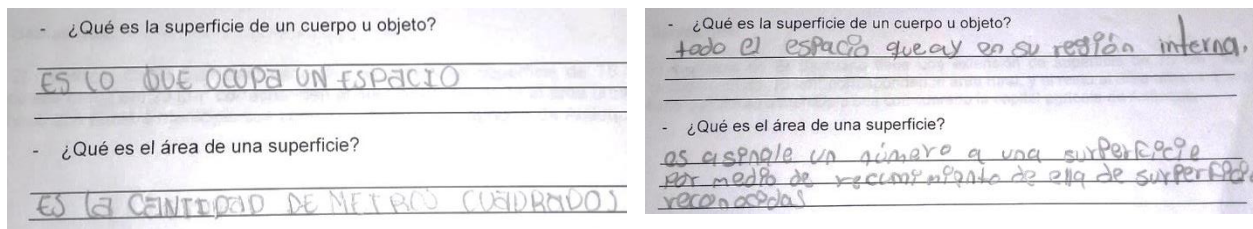 - ¿Qué es la superficie de un cuerpo u objeto?
ES LO QUE OCUPA UN ESPACIO
- ¿Qué es el área de una superficie?
ES LA CANTIDAD DE METROS CUADRADOS
- ¿Qué es la superficie de un cuerpo u objeto?
todo el espacio que ay en su región interna.
- ¿Qué es el área de una superficie?
es a un número a una
por medio de de ella de